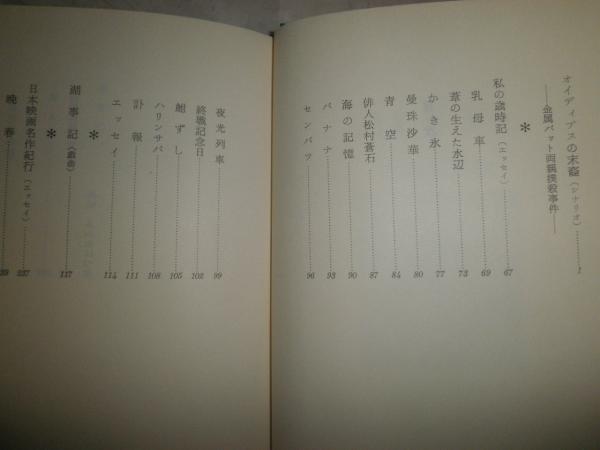 オイディプスの末裔（シナリオ）…………1
――金属バット両親撲殺事件――
＊
私の歳時記（エッセイ）…………67
乳母車…………69
葦の生えた水辺…………73
かき氷…………77
曼珠沙華…………80
青空…………84
俳人松村蒼石…………87
海の記憶…………90
バナナ…………93
センバツ…………96
夜光列車…………99
終戦記念日…………102
鮒ずし…………105
ハリンサバ…………108
訃報…………111
エッセイ…………114
＊
湖事記（戯曲）…………117
＊
日本映画名作紀行（エッセイ）…………237
晩春…………39